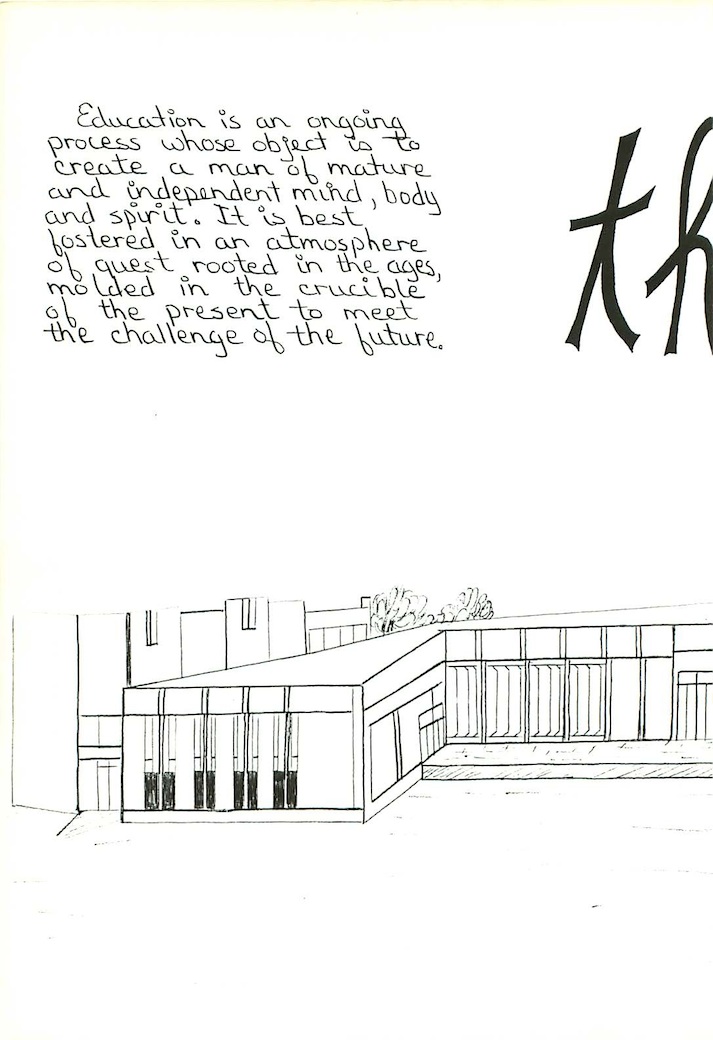 Education is an ongoing
process whose object is to
create a man of mature
and independent mind, body
and spirit. It is best
fostered in an atmosphere
of quest rooted in the ages,
molded in the crucible
of the present to meet
the challenge of the future.
th